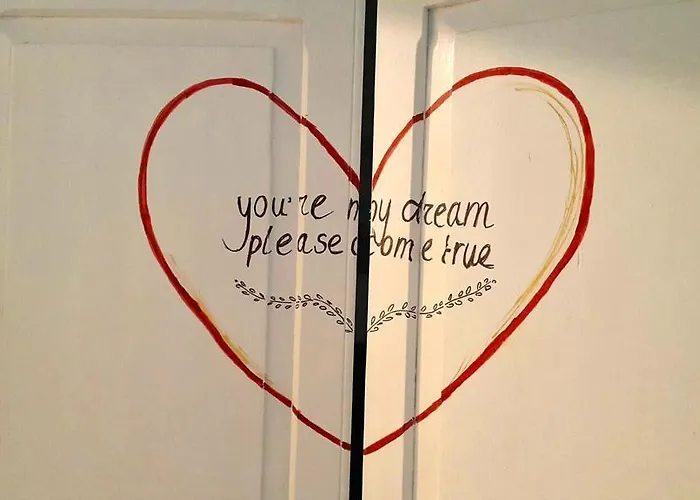 you're my dream
please come true